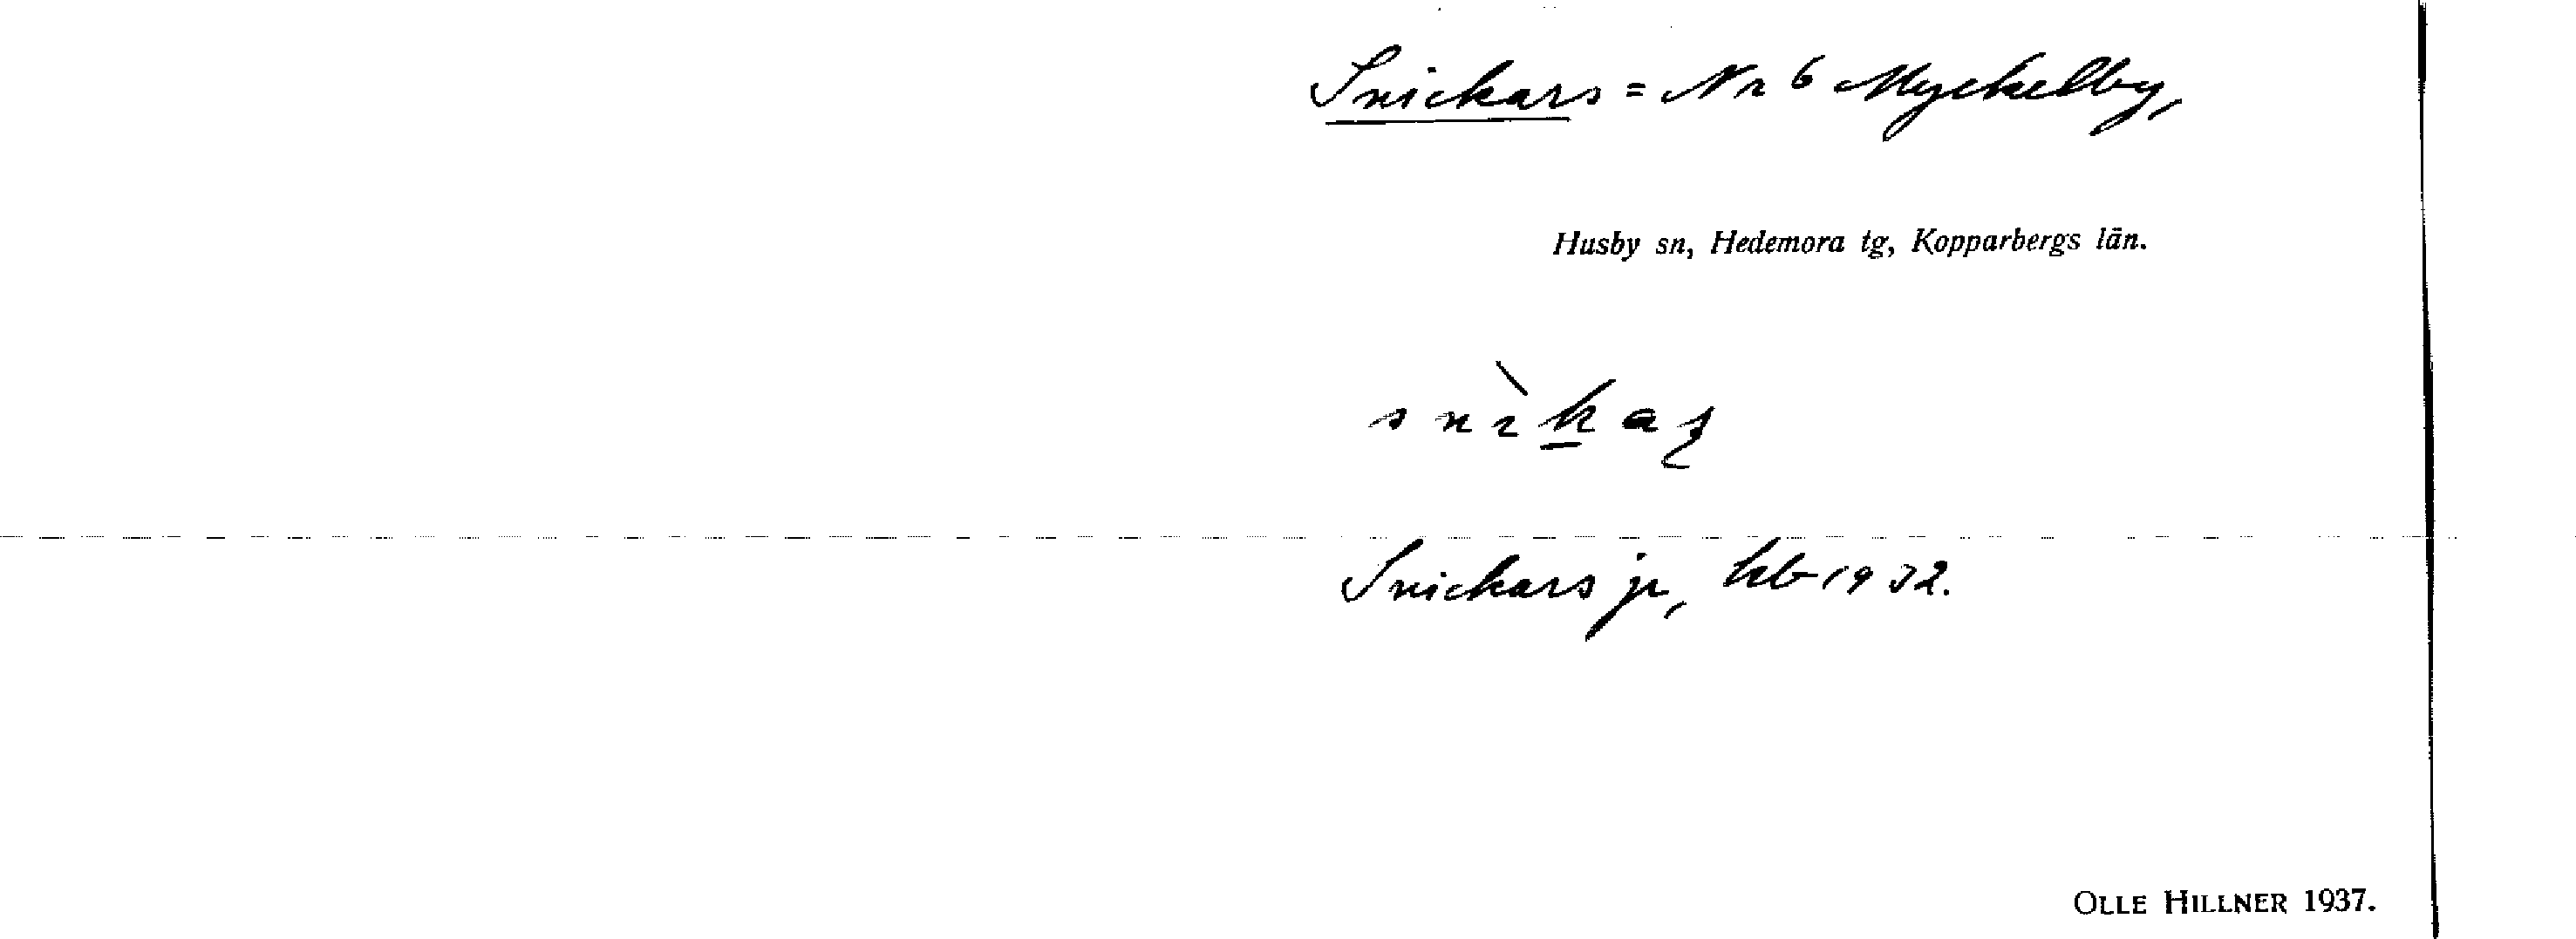 Snickars = Nr 6 Myckelby,
Husby sn, Hedemora tg, Kopparbergs län.
snìkaʂ
Snickars jr, hb 1932.
OLLE HILLNER 1937.